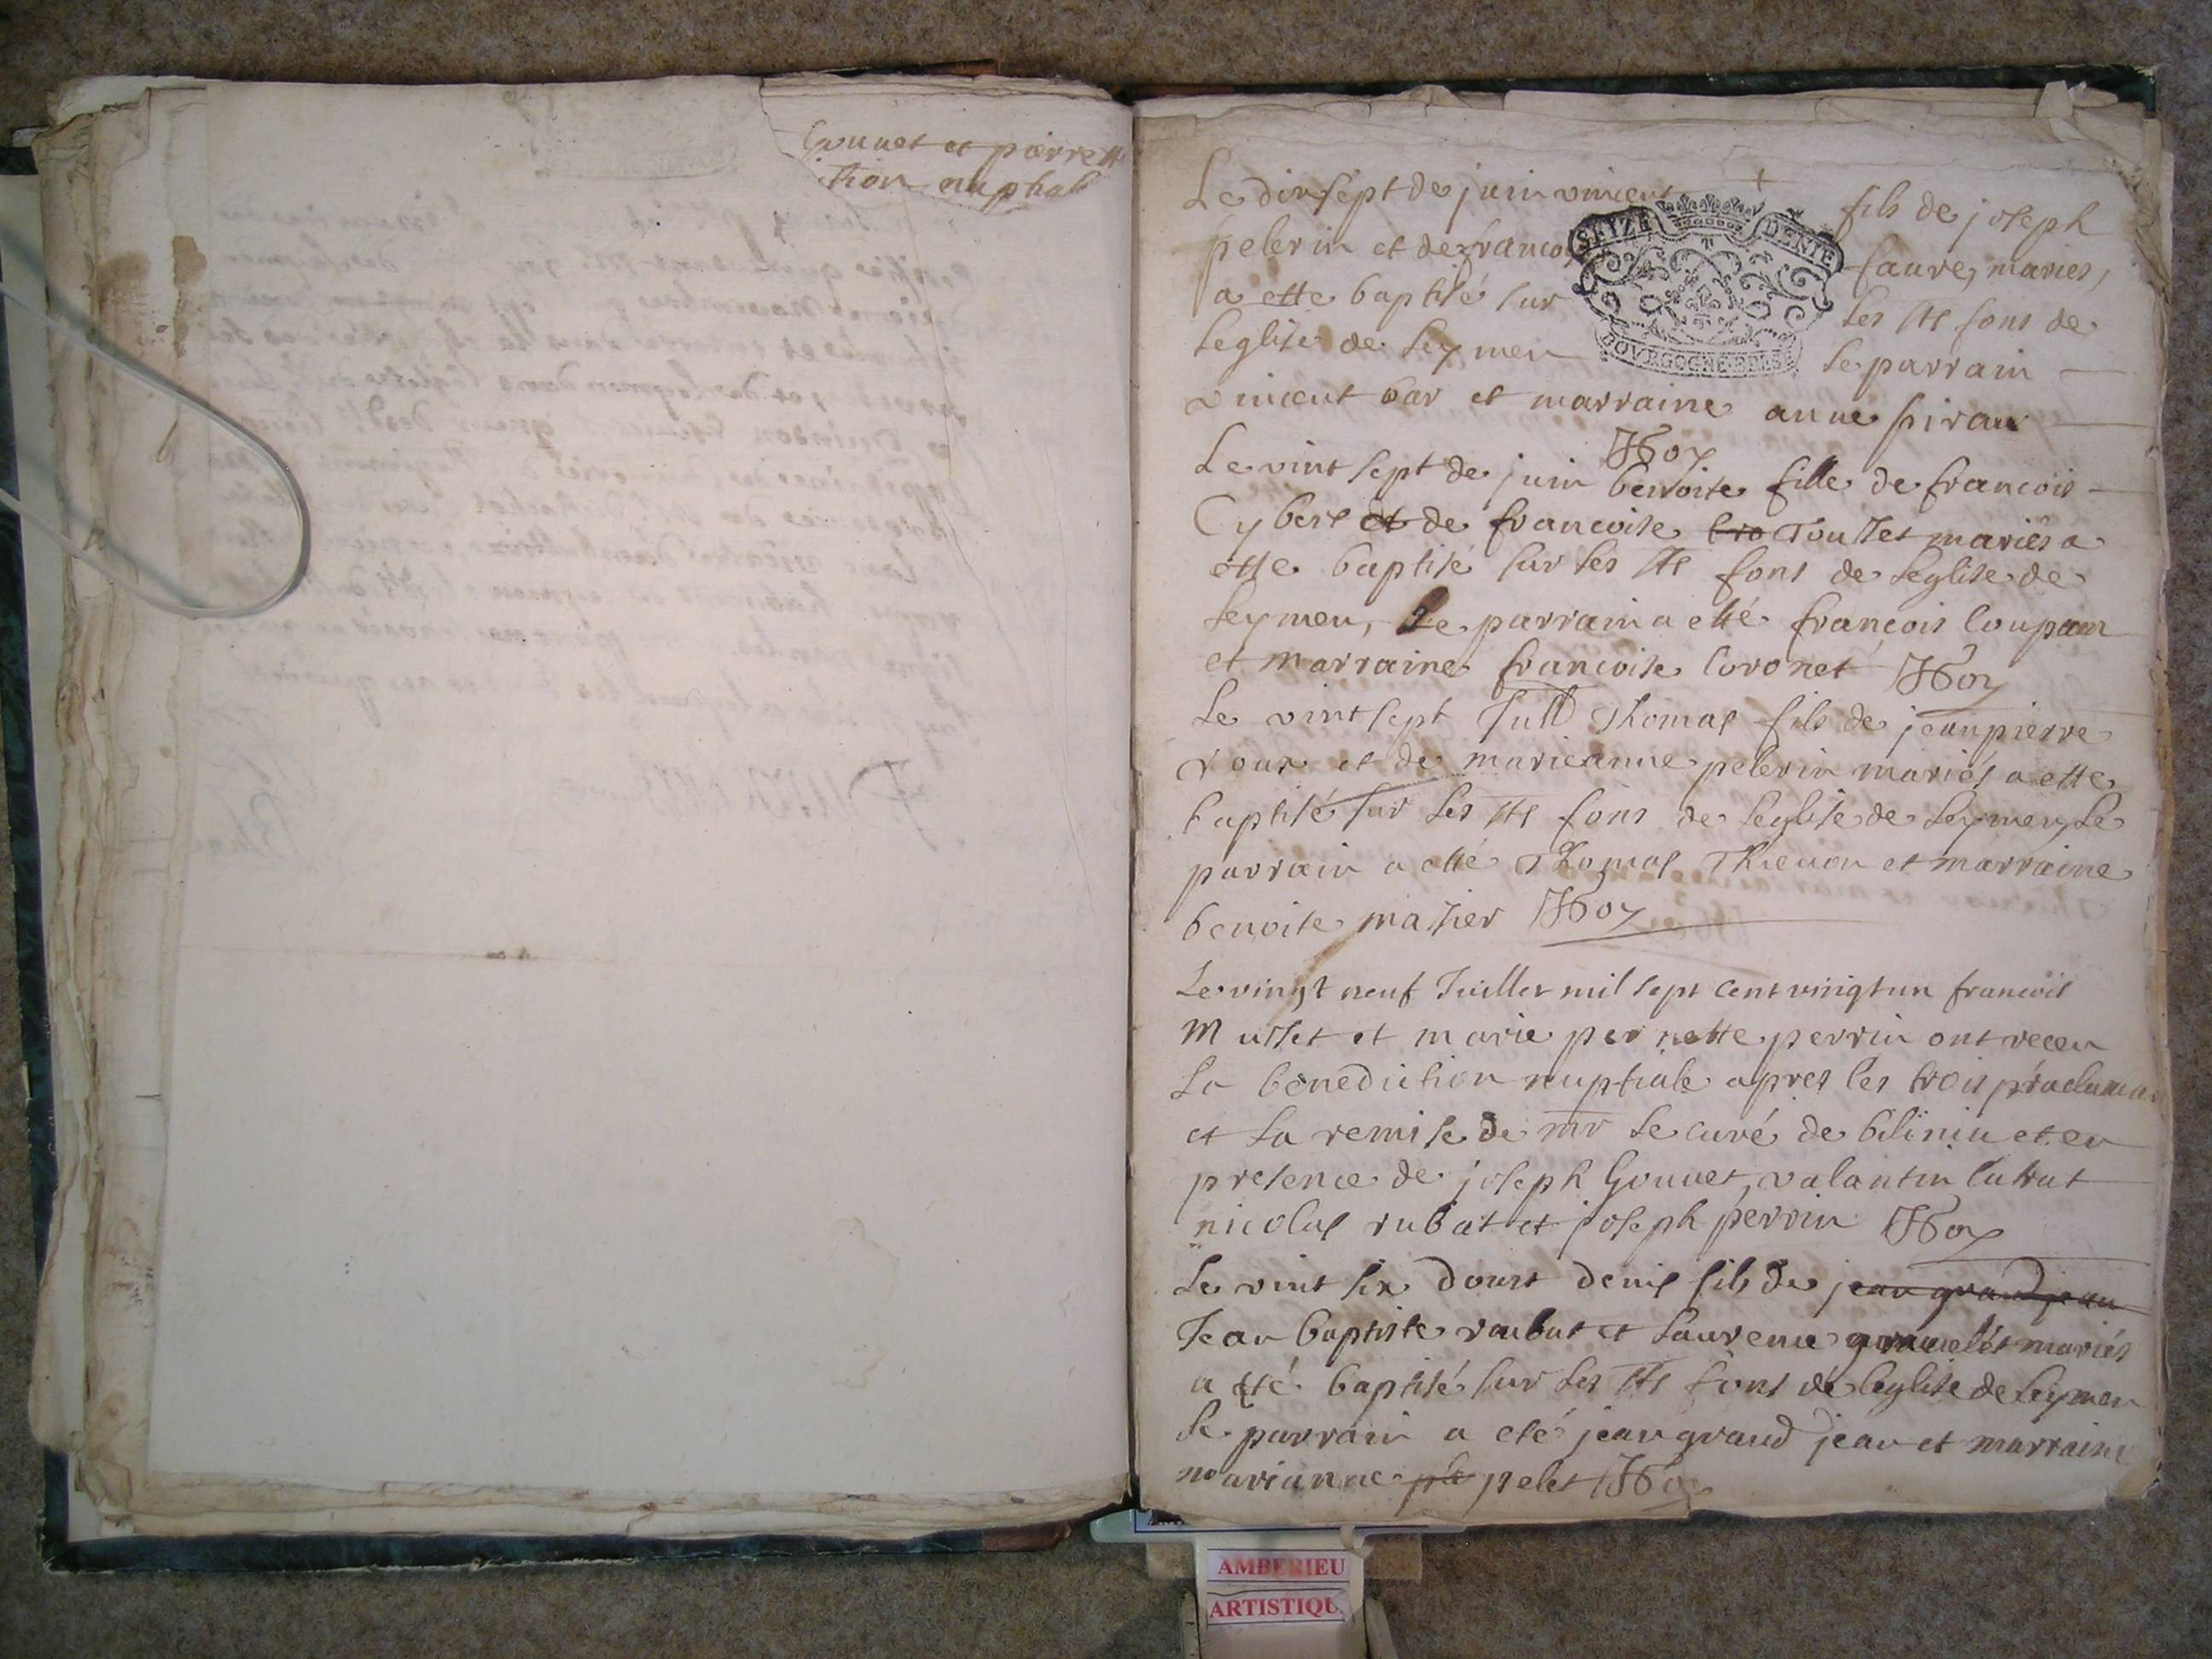 Gouuet et pierrett
ition nuptial
Le dixsept de juin vincent fils de joseph
pelerin et de francoi faure, maries,
a ette baptisé sur les sts fons de
leglise de leymen le parrain
vincent bar et marraine anne siraux
SEIZE DENIE
BOVRGOGNE BRES
Le vint sept de juin benoite fille de francois
Cybert et de francoise cro Tousset mariés a
ette baptisé sur les sts fons de leglise de
leymen, Le parrain a etté francois loupain
et marraine francoise Coronet
Le vint sept Jull Thomas fils de jean pierre
roux et de marieanne pelerin mariés a ette
baptisé sur les sts fons de leglise de leymen, le
parrain a etté Thomas Thieuon et marraine
benoite masier
Le vingt neuf Juillet mil sept cent vingt un francois
Musset et marie pernette perrin ont receu
La benediction nuptiale apres les trois proclama
et la remise de mr le curé de biliniu et en
presence de joseph Gouuet, valantin lutrat
nicolas rubat et joseph perrin
Le vint six doust denis fils de jean grand jean
Jean baptiste roubat et laurence mariés
a eté baptisé sur les sts fons de leglise de leymen
Le parrain a eté jean grand jean et marraine
marianne ple pelet
AMBERIEU
ARTISTIQU